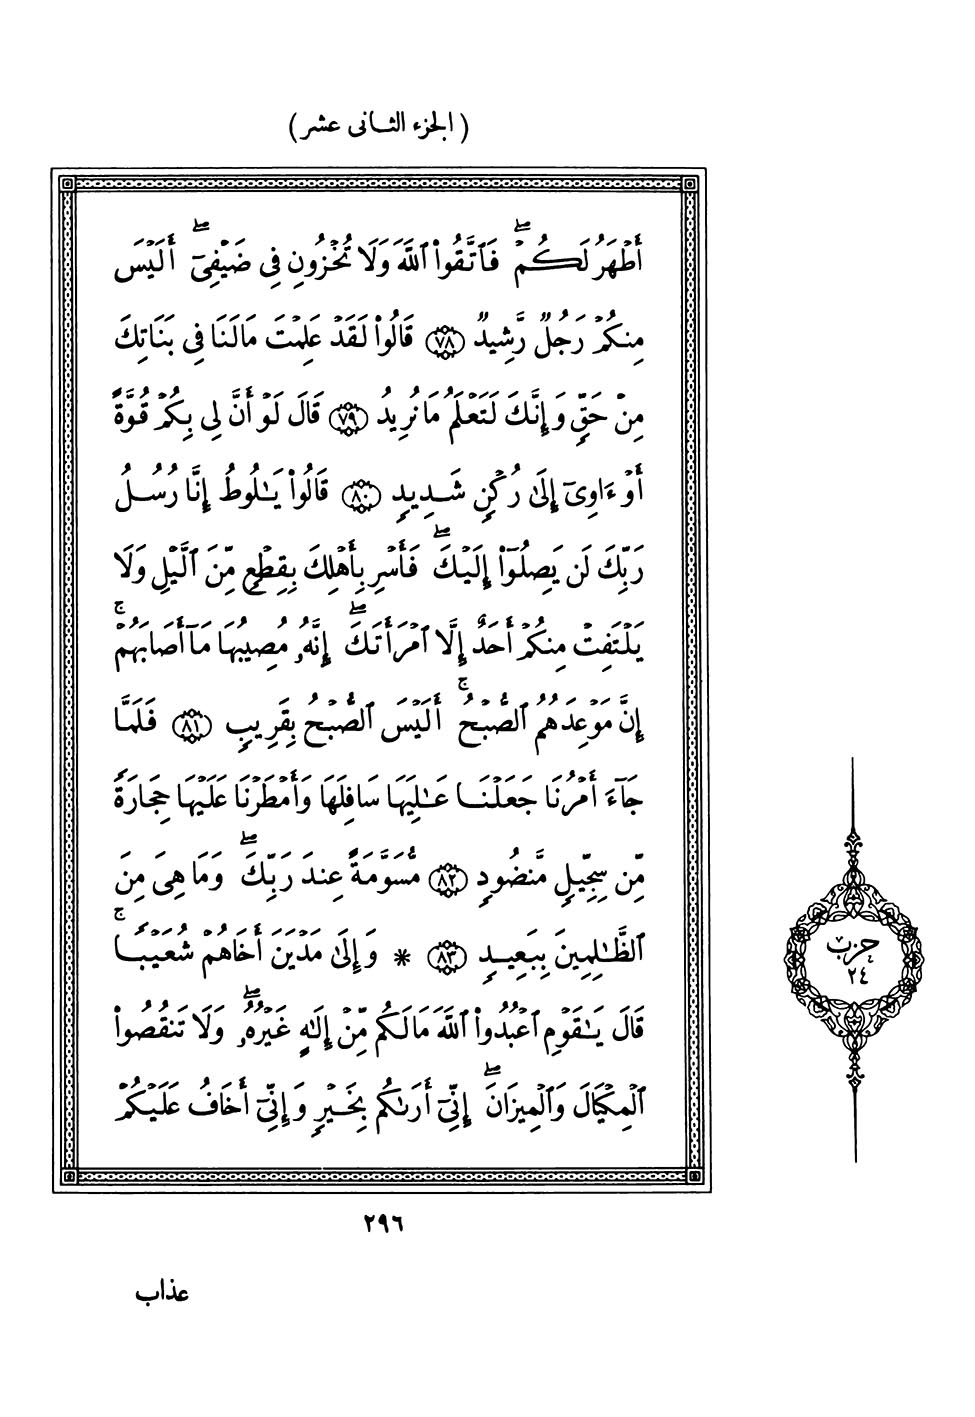 (الجزء الثانى عشر)
أَطْهَرُ لَكُمْۖ فَٱتَّقُوا۟ ٱللَّهَ وَلَا تُخْزُونِ فِى ضَيْفِىٓۖ أَلَيْسَ
مِنكُمْ رَجُلٌ رَّشِيدٌ ٧٨ قَالُوا۟ لَقَدْ عَلِمْتَ مَا لَنَا فِى بَنَاتِكَ
مِنْ حَقٍّ وَإِنَّكَ لَتَعْلَمُ مَا نُرِيدُ ٧٩ قَالَ لَوْ أَنَّ لِى بِكُمْ قُوَّةً
أَوْ ءَاوِىٓ إِلَىٰ رُكْنٍ شَدِيدٍ ٨٠ قَالُوا۟ يَـٰلُوطُ إِنَّا رُسُلُ
رَبِّكَ لَن يَصِلُوٓا۟ إِلَيْكَۖ فَأَسْرِ بِأَهْلِكَ بِقِطْعٍ مِّنَ ٱلَّيْلِ وَلَا
يَلْتَفِتْ مِنكُمْ أَحَدٌ إِلَّا ٱمْرَأَتَكَۖ إِنَّهُۥ مُصِيبُهَا مَآ أَصَابَهُمْۚ
إِنَّ مَوْعِدَهُمُ ٱلصُّبْحُۚ أَلَيْسَ ٱلصُّبْحُ بِقَرِيبٍ ٨١ فَلَمَّا
جَآءَ أَمْرُنَا جَعَلْنَا عَـٰلِيَهَا سَافِلَهَا وَأَمْطَرْنَا عَلَيْهَا حِجَارَةً
مِّن سِجِّيلٍ مَّنضُودٍ ٨٢ مُّسَوَّمَةً عِندَ رَبِّكَۖ وَمَا هِىَ مِنَ
ٱلظَّـٰلِمِينَ بِبَعِيدٍ ٨٣ * وَإِلَىٰ مَدْيَنَ أَخَاهُمْ شُعَيْبًاۚ
قَالَ يَـٰقَوْمِ ٱعْبُدُوا۟ ٱللَّهَ مَا لَكُم مِّنْ إِلَـٰهٍ غَيْرُهُۥۖ وَلَا تَنقُصُوا۟
ٱلْمِكْيَالَ وَٱلْمِيزَانَۖ إِنِّىٓ أَرَىٰكُم بِخَيْرٍ وَإِنِّىٓ أَخَافُ عَلَيْكُمْ
حزب
٢٤
٢٩٦
عذاب